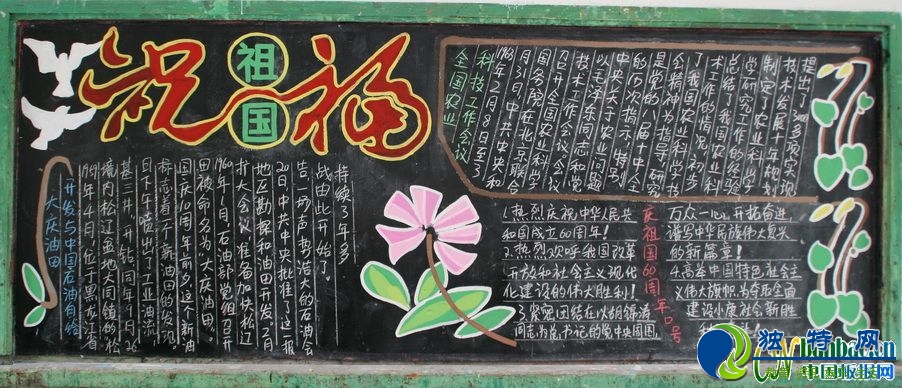 祝福
祖国
开发与中国石油有给
大庆油田
1959年4月,位于黑龙江省
境内松辽盆地大同镇的松
基三井,开钻。同年9月26
日下午喷出了工业油流
标志着一个新油田的发现。
国庆10周年前夕,这个新油
田被命名为"大庆油田"。
1960年1月,石油部党组召开
扩大会议准备加快松辽
地区勘探和油田开发。2月
20日,中共中央批准了这一报
告。一场声势浩大的石油会
战由此开始了。
持续了3年多
全国农业
科技工作会议
1963年2月8日至3
月31日,中共中央和
国务院在北京联合
召开全国农业科学
技术工作会议。会议
以毛泽东同志和党
中央关于农业问题
的历次指示,特别
是党的八届十中全
会精神为指导,研究
了我国农业科学技
术工作的情况,初步
总结了
学研究工作的经验
制定了农业科学
技术发展十年规划
提出了3000多项实现
庆祝祖国60周年口号
1.热烈庆祝中华人民共
和国成立60周年!
2.热烈欢呼我国改革
开放和社会主义现代
化建设的伟大胜利!
3.紧密团结在以胡锦涛
同志为总书记的党中央周围
万众一心,开拓奋进
谱写中华民族伟大复兴
的新篇章!
4.高举中国特色社会主
义伟大旗帜,为夺取全面
建设小康社会新胜
独特网
中国板报网